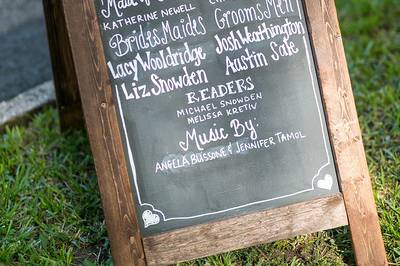 Maid of
KATHERINE NEWELL
Brides Maides GroomsMen
Lacy Wooldridge Josh Worthington
Liz Snowden Austin Sale
READERS
MICHAEL SNOWDEN
MELISSA KRETIV
Music By:
ANGELA BUSSONE & JENNIFER TAMOL